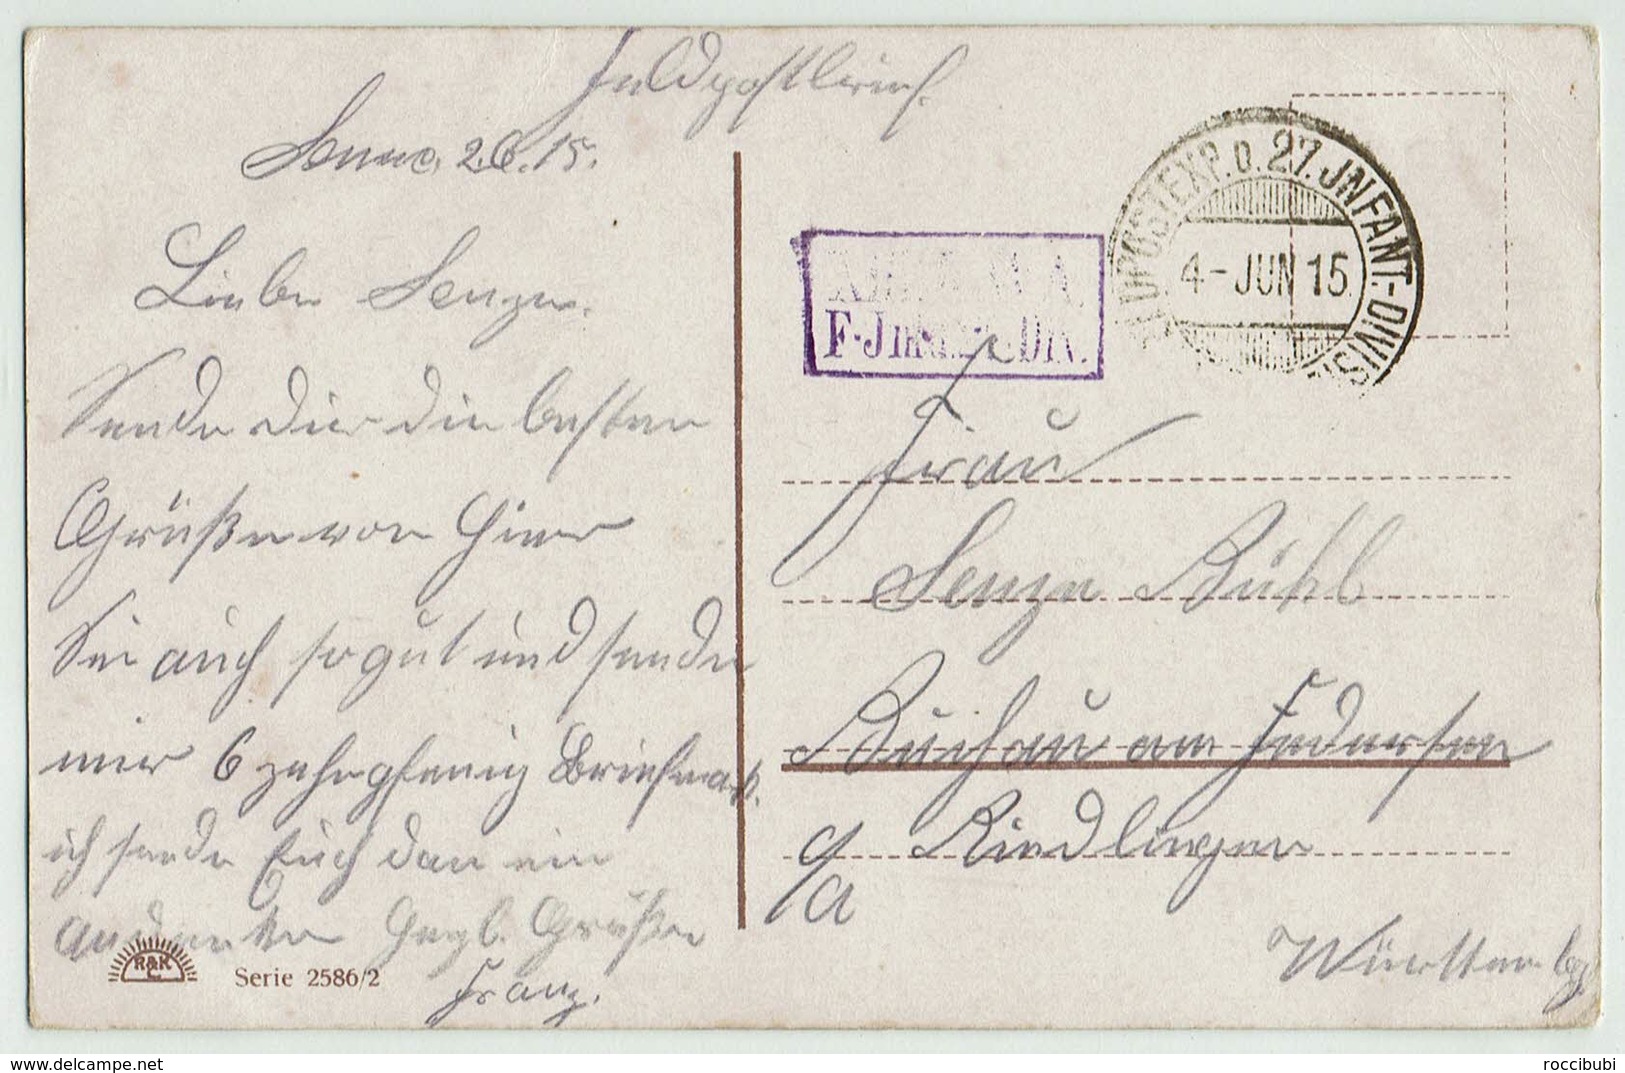 Feldpostbrief.
2.6.15.
Liebe Senze.
Sende Dir die besten
Grüße von hier
Sei auch so gut und sende
mir 6 zehnpfennig Briefmark.
ich sende Euch dan ein
Andenken Herzl. Grüßen
Franz.
R&K
L
Serie 2586/2
F-Jnf. DIV.
FELDPOSTEXP. D. 27. JNFANT.-DIVIS.
4-JUN 15
Frau
Senze Bühl
Buchau am Federsee
O/A Riedlingen
Württembg
www.delcampe.net
roccibubi